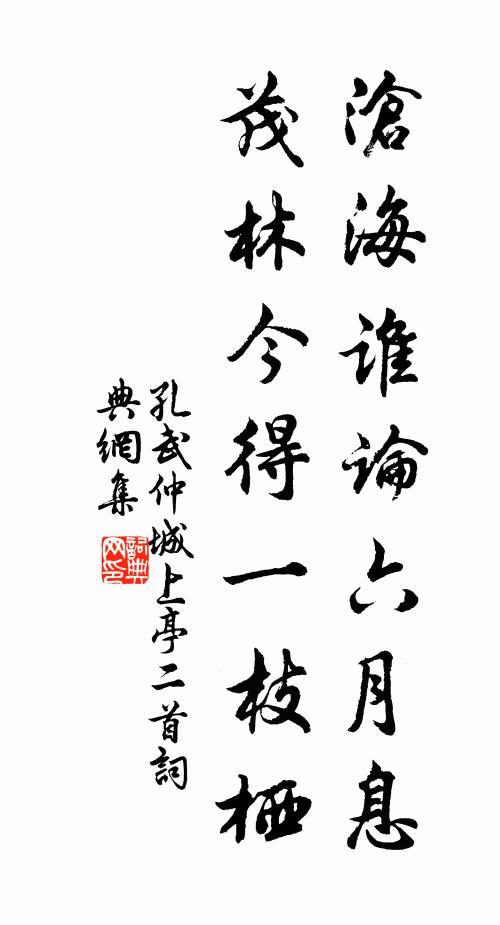 滄海誰論六月息
茂林今得一枝栖
孔武仲城上亭二首詞
典網集
詞典網印